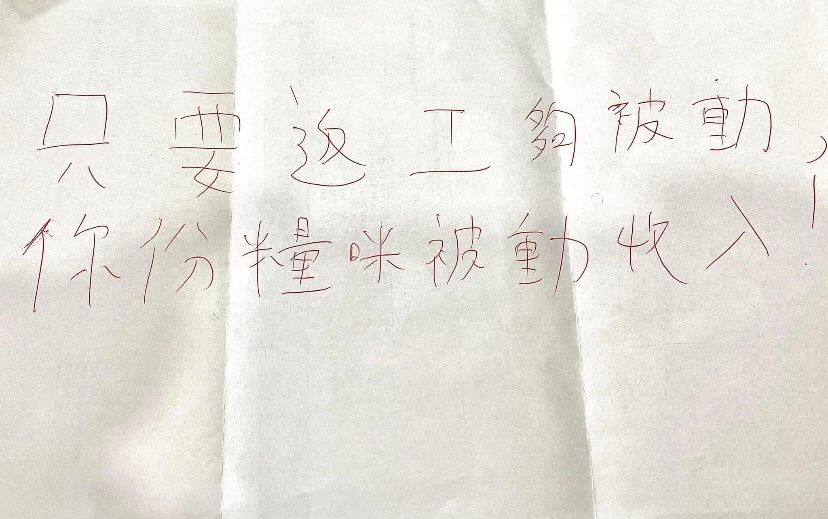 只要返工夠被動,
你份糧咪被動收入!